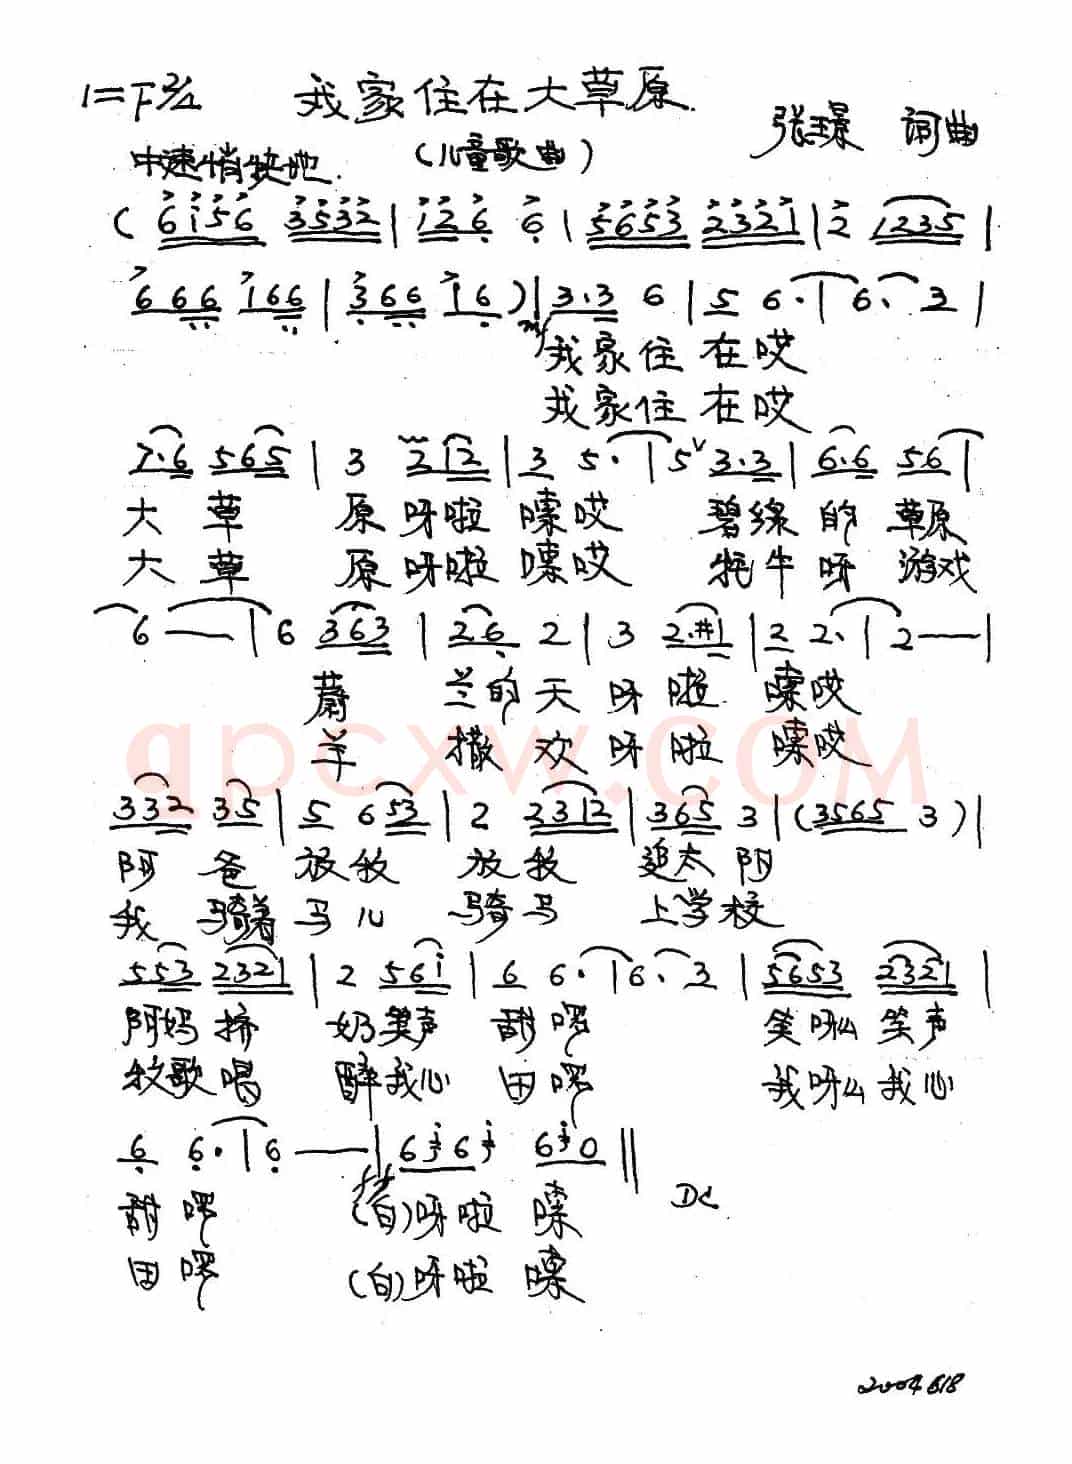 1=F 2/4 我家住在大草原
张璟 词曲
中速稍快地 (儿童歌曲)
( 6 i 5 6 3 5 3 2 | 1 2 6 6 | 5 6 5 3 2 3 2 1 | 2 1 2 3 5 |
6 6 6 1 6 6 | 3 6 6 1 6 ) | 3·3 6 | 5 6· | 6· 3 |
mf
我家住 在哎
我家住 在哎
7·6 5 6 5 | 3 2 1 2 | 3 5· | 5 V 3·3 | 6·6 5 6 |
大 草 原 呀啦 嗦哎 碧绿 的 草原
大 草 原 呀啦 嗦哎 牦牛 呀 游戏
6 — | 6 3 6 3 | 2·6 2 | 3 2·#1 | 2 2· | 2 — |
蔚 兰的 天 呀 啦 嗦哎
羊 撒 欢 呀 啦 嗦哎
qpcxw.com
3 3 2 3 5 | 5 6 5 3 | 2 2 3 1 2 | 3 6 5 3 | ( 3 5 6 5 3 ) |
阿 爸 放牧 放牧 追太阳
我 骑着 马儿 骑马 上学校
5 5 3 2 3 2 1 | 2 5 6 i | 6 6· | 6· 3 | 5 6 5 3 2 3 2 1 |
阿妈 挤 奶笑声 甜啰 笑呀么 笑声
牧歌唱 醉我心 田啰 我呀么 我心
6 6· | 6 — | 6 i 6 i 6 i 0 ||
D.C
甜 啰 (白)呀啦 嗦
田 啰 (白)呀啦 嗦
2004 618